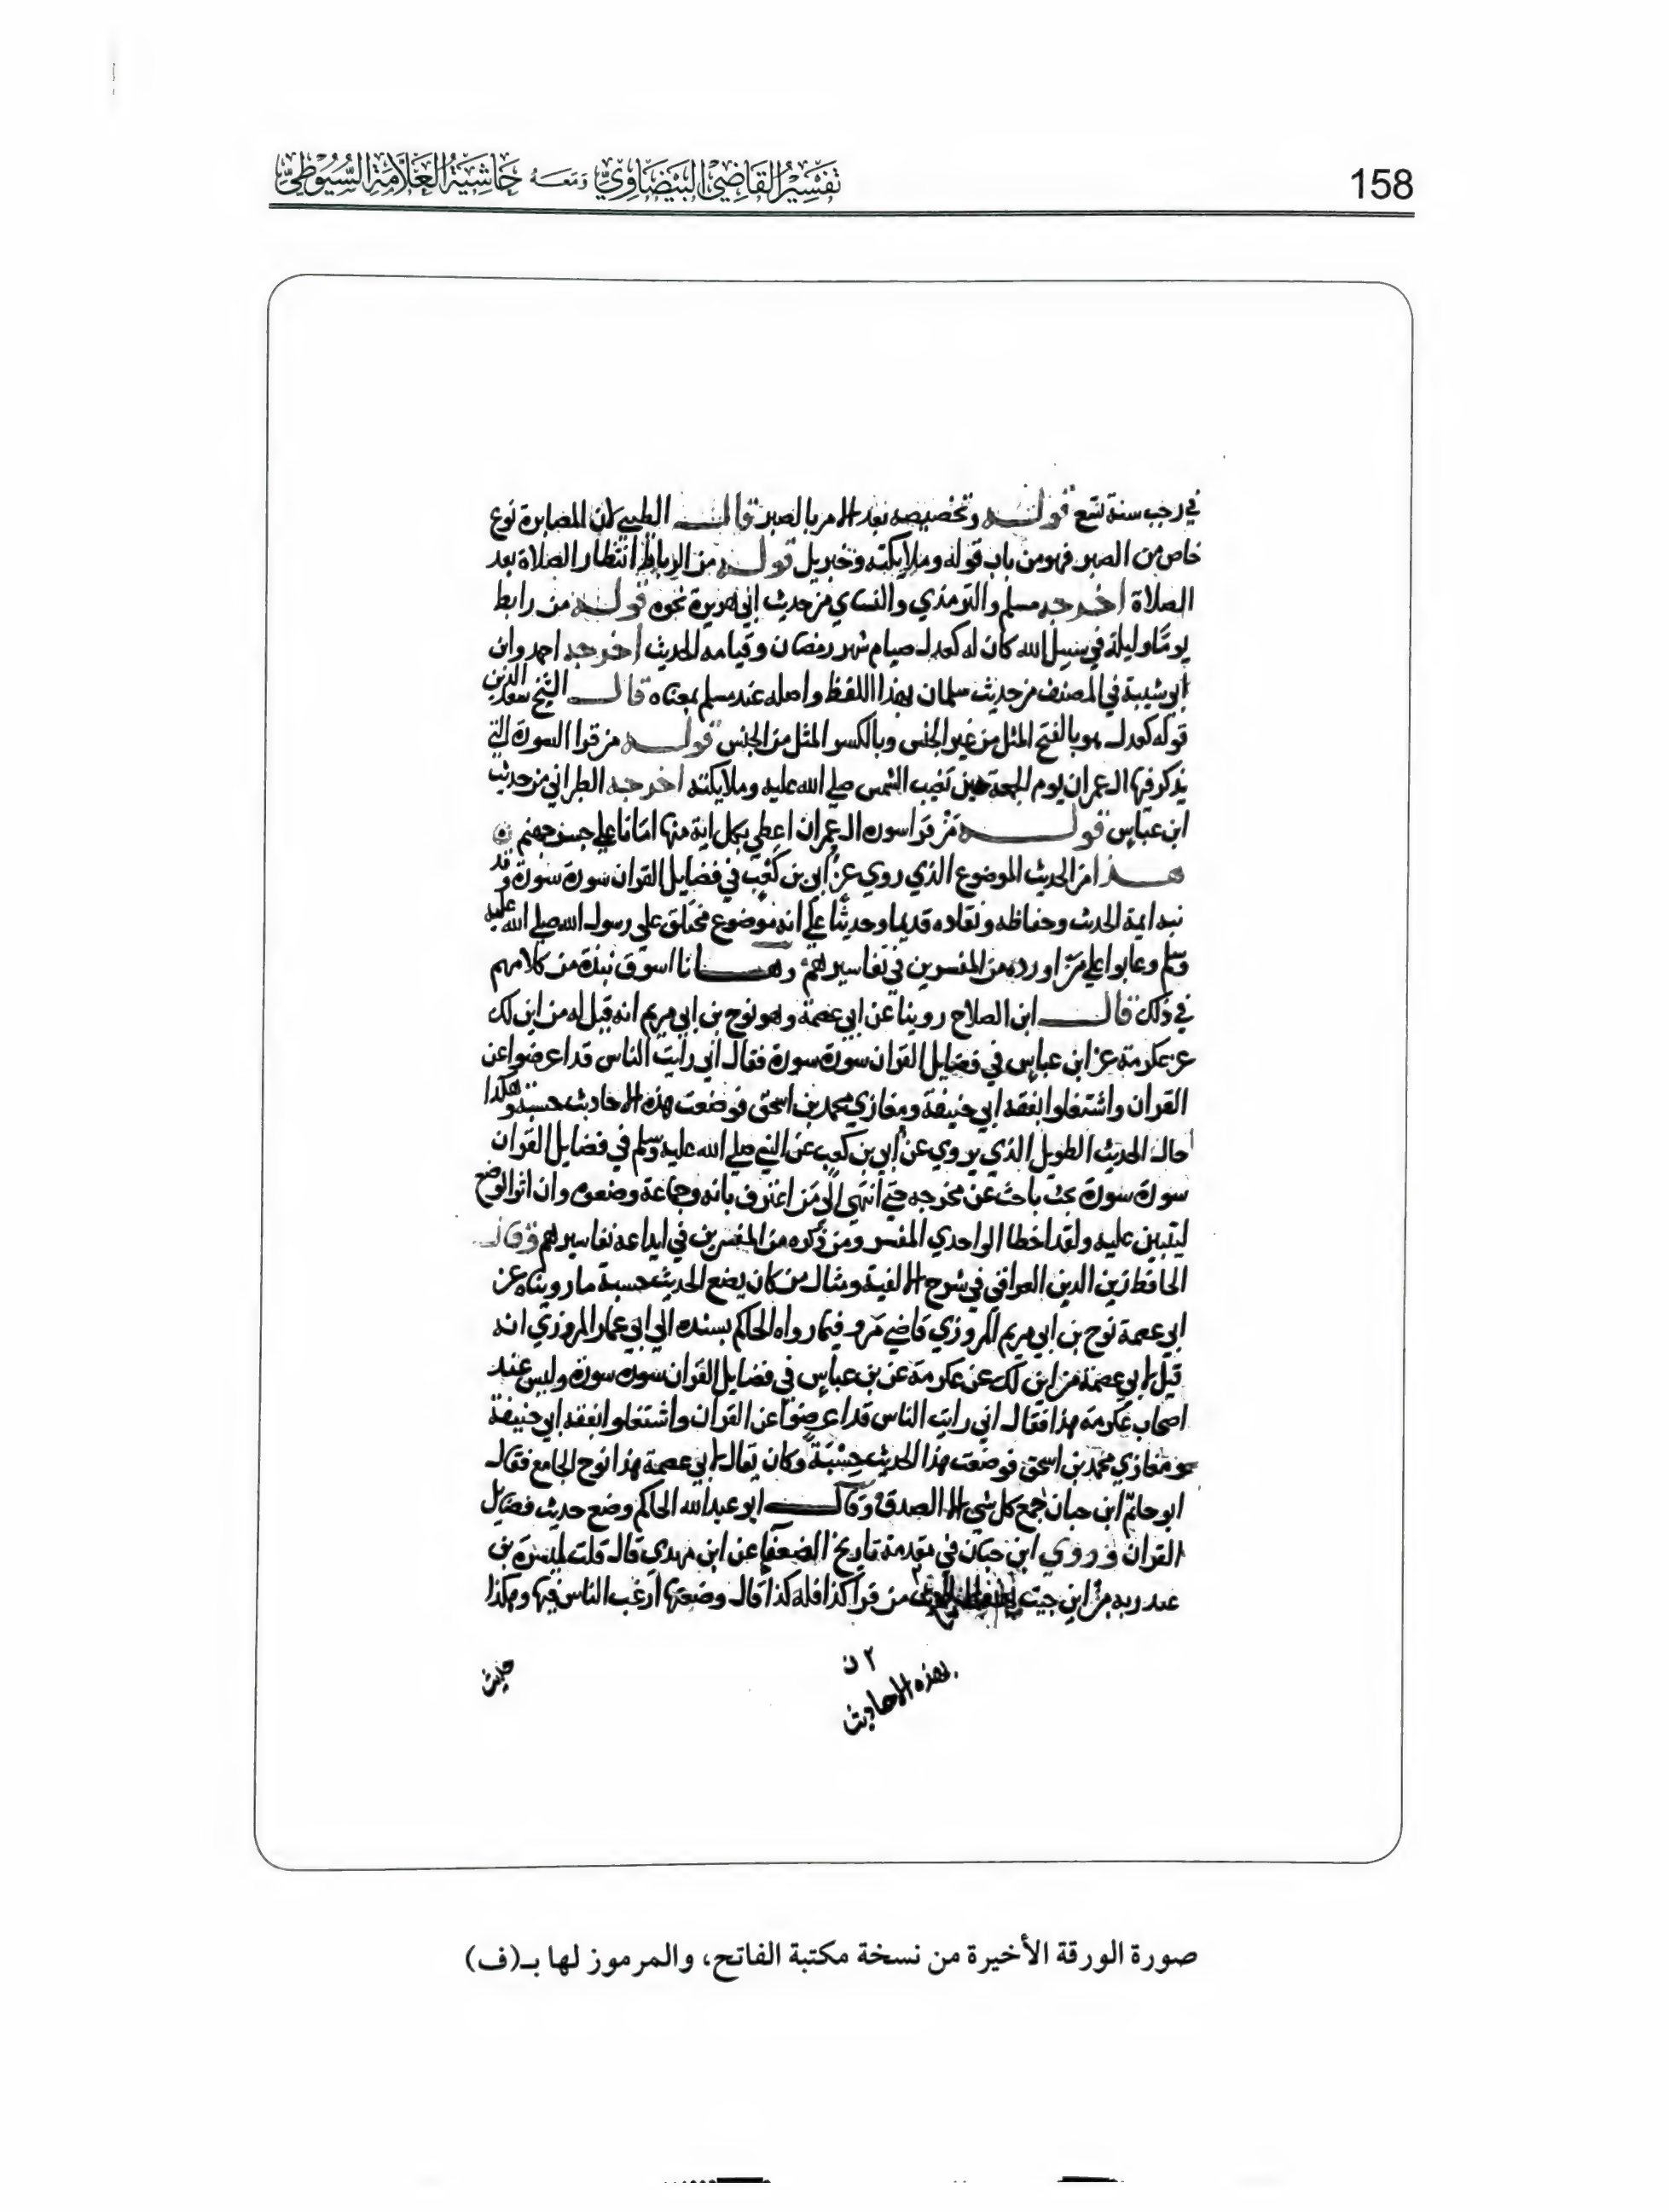 158
تفسير القاضي البيضاوي ومعه حاشية العلامة السيوطي
في رجب سنة تسع قوله وتخصيصه بعد الامر بالصبر قال الطيبي لان المصابرة نوع
خاص من الصبر فهو من باب قوله وملايكته وجبريل قوله من الرباط انتظار الصلاة بعد
الصلاة اخرجه مسلم والترمذي والنساي من حديث ابي هريرة نحوه قوله من رابط
يوما وليلة في سبيل الله كان له كعدل صيام شهر رمضان وقيامه الحديث اخرجه احمد وابن
ابي شيبة في المصنف من حديث سلمان بهذا اللفظ واصله عند مسلم بمعناه قال الشيخ سعد الدين
قوله كعدل هو بالفتح المثل من غير الجنس وبالكسر المثل من الجنس قوله من قرا السورة التي
يذكر فيها ال عمران يوم الجمعة حين تغيب الشمس صلى الله عليه وملايكته اخرجه الطبراني من حديث
ابن عباس قوله من قرا سورة ال عمران اعطي بكل اية منها امانا على جسر جهنم
هذا من الحديث الموضوع الذي روي عن ابي بن كعب في فضايل القران سورة سورة وقد
نبه ايمة الحديث وحفاظه ونقاده قديما وحديثا على انه موضوع مختلق على رسول الله صلى الله عليه
وسلم وعابوا على من اورده من المفسرين في تفاسيرهم وها انا اسوق نبذة من كلامهم
في ذلك قال ابن الصلاح روينا عن ابي عصمة وهو نوح بن ابي مريم انه قيل له من اين لك
عن عكرمة عن ابن عباس في فضايل القران سورة سورة فقال اني رايت الناس قد اعرضوا عن
القران واشتغلوا بفقه ابي حنيفة ومغازي محمد بن اسحق فوضعت هذه الاحاديث حسبة وهكذا
حال الحديث الطويل الذي يروي عن ابي بن كعب عن النبي صلى الله عليه وسلم في فضايل القران
سورة سورة بحث باحث عن مخرجه حتى انتهى الى من اعترف بانه وجماعة وضعوه وان اثر الوضع
ليتبين عليه ولقد اخطا الواحدي المفسر ومن ذكره من المفسرين في ايداعه تفاسيرهم وقال
الحافظ زين الدين العراقي في شرح الالفية ومثال من كان يضع الحديث حسبة ما رويناه عن
ابي عصمة نوح بن ابي مريم المروزي قاضي مرو فيما رواه الحاكم بسنده الى ابي عمار المروزي انه
قيل لابي عصمة من اين لك عن عكرمة عن بن عباس في فضايل القران سورة سورة وليس عند
اصحاب عكرمة هذا فقال اني رايت الناس قد اعرضوا عن القران واشتغلوا بفقه ابي حنيفة
ومغازي محمد بن اسحق فوضعت هذا الحديث حسبة وكان يقال لابي عصمة هذا نوح الجامع فقال
ابو حاتم ابن حبان جمع كل شي الا الصدق وقال ابو عبد الله الحاكم وضع حديث فضايل
القران وروي ابن حبان في مقدمة تاريخ الضعفا عن ابن مهدي قال قلت لميسرة بن
عبد ربه من اين جيت من قرا كذا فله كذا قال وضعتها ارغب الناس فيها وهكذا
٢ ن
بهذه الاحاديث
حديث
صورة الورقة الأخيرة من نسخة مكتبة الفاتح، والمرموز لها بـ(ف)